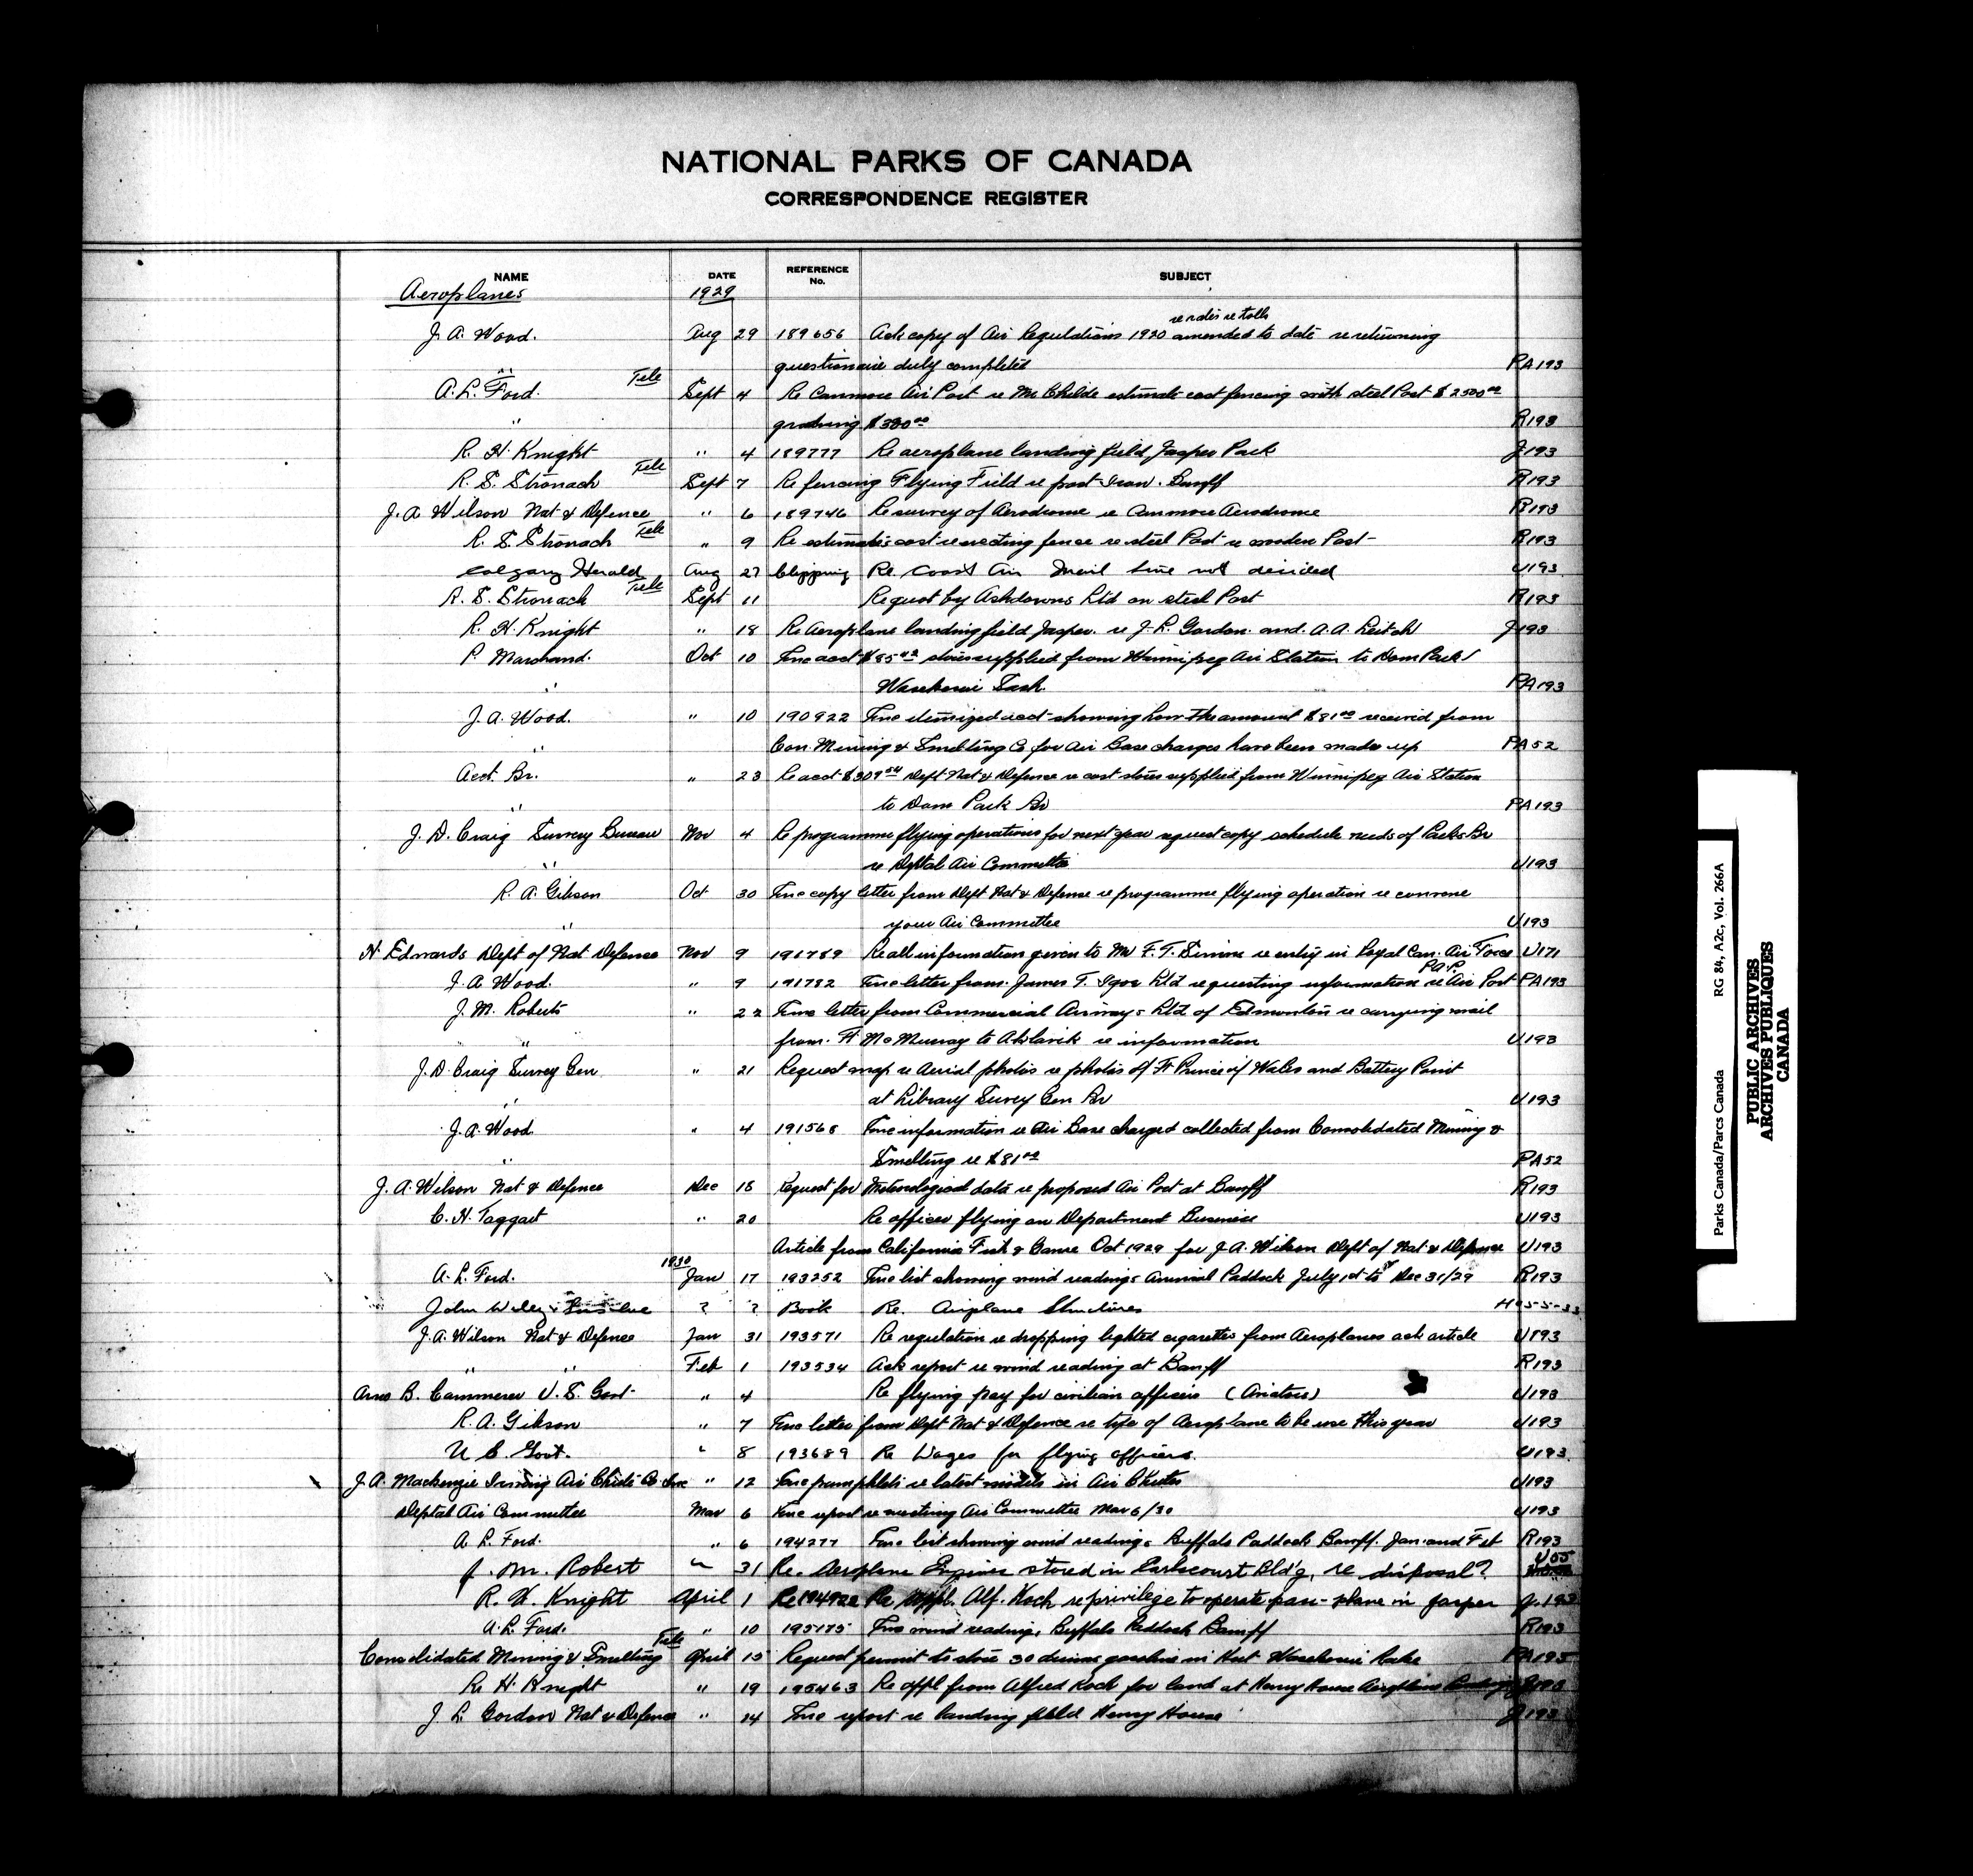 NATIONAL PARKS OF CANADA
CORRESPONDENCE REGISTER
NAME DATE REFERENCE No. SUBJECT
Aeroplanes 1929
re rates re tolls
J. A. Wood. Aug 29 189656 Ack copy of Air Regulations 1920 amended to date re returning
questionaire duly completed PA193
A. L. Ford. Tele Sept 4 Re Canmore Air Port re Mr Childe estimate cost fencing with steel Post $2500.00
" grading $300.00 R193
R. H. Knight " 4 189777 Re aeroplane landing field, Jasper Park J193
R. S. Stronach Tele Sept 7 Re fencing Flying Field re post Iron. Banff R193
J. A Wilson Nat & Defence " 6 189746 Re survey of Aerodrome re Canmore Aerodrome R193
R. S. Stronach Tele " 9 Re estimates cost re erecting fence re steel Post re wooden Post R193
Calgary Herald Aug 27 Clipping Re Coast Air Mail line not decided U193
R. S. Stronach Tele Sept 11 Request by Ashdowns Ltd on steel Post R193
R. H. Knight " 18 Re Aeroplane landing field Jasper. re J. L. Gordon. and. A. A. Leitch J193
P. Marchand. Oct 10 Enc acct $85.42 stores supplied from Winnipeg Air Station to Dom Park
" Waskesiu Sask. PA193
J. A. Wood. " 10 190922 Enc itemized acct showing how the amount $81.00 received from
" Con. Mining & Smelting Co for Air Base charges have been made up PA52
Acct. Br. " 23 Re acct $309.54 Dept Nat & Defence re cost stores supplied from Winnipeg Air Station
" to Dom Park Br PA193
J. D. Craig Survey Bureau Nov 4 Re programme flying operations for next year request copy schedule needs of Parks Br
" re Deptal Air Committee U193
R. A. Gibson Oct 30 Enc copy letter from Dept Nat & Defense re programme flying operation re convene
" your Air Committee U193
N. Edwards Dept of Nat Defense Nov 9 191789 Re all information given to Mr F. T. re entry in Royal Can. Air Force U171
P.A.P.
J. A. Wood. " 9 191782 Enc letter from. James T. Ltd requesting information re Air Port PA193
J. M. Roberts " 22 Enc letter from Commercial Airways Ltd. of Edmonton re carrying mail
" from. Ft McMurray to Aklavik re information U193
J. D. Craig Survey Gen " 21 Request map re Aerial photos re photos of Ft Prince of Wales and Battery Point
" at Library Survey Gen Br U193
J. A. Wood " 4 191568 Enc information re Air Base charged collected from Consolidated Mining &
" Smelting re $81.00 PA52
J. A. Wilson Nat & Defence Dec 18 Request for Meterological data re proposed Air Port at Banff R193
C. H. Taggart " 20 Re officer flying on Department Business U193
Article from California Fish & Game Oct 1929 for J. A. Wilson Dept of Nat & Defence U193
1930
A. L. Ford. Jan 17 193252 Enc list showing wind readings Animal Paddock July 1st to Dec 31/29 R193
John Wiley & ? ? Book Re. Airplane Structures
J. A. Wilson Nat & Defence Jan 31 193571 Re regulation re dropping lighted cigarettes from Aeroplanes ack article U193
" " Feb 1 193534 Ack report re wind reading at Banff R193
Arno B. Cammerer U. S. Govt. " 4 Re flying pay for civilian officers (Aviators) U193
R. A. Gibson " 7 Enc letter from Dept Nat & Defence re type of Aeroplane to be use this year U193
U S. Govt. " 8 193689 Re Wages for flying officers. U193
J. A. Mackenzie Irving Air Chute Co Inc " 12 Enc pamphlets re latest models in Air Chutes U193
Deptal Air Committee Mar 6 Enc report re meeting Air Committee Mar 6/30 U193
A. L. Ford. " 6 194277 Enc list showing wind readings Buffalo Paddock Banff. Jan. and Feb R193
J. M. Robert " 31 Re. Aeroplane Engines stored in Earlscourt Bld'g, re disposal? U55
R. H. Knight April 1 Re 194922 Re appl. Alf. Koch re privilege to operate pass-plane in Jasper J.193
A. L. Ford. " 10 195175 Enc wind readings Buffalo Paddock Banff R193
Consolidated Mining & Smelting Tele April 15 Request permit to store 30 drums gasoline in Hut Waskesiu Lake PA193
R. H. Knight " 19 195463 Re appl from Alfred Koch for land at Henry House Airplane Landing J193
J. L. Gordon Nat & Defence " 14 Enc report re landing field Henry House J193
Parks Canada/Parcs Canada RG 84, A2c, Vol. 266A
PUBLIC ARCHIVES
ARCHIVES PUBLIQUES
CANADA